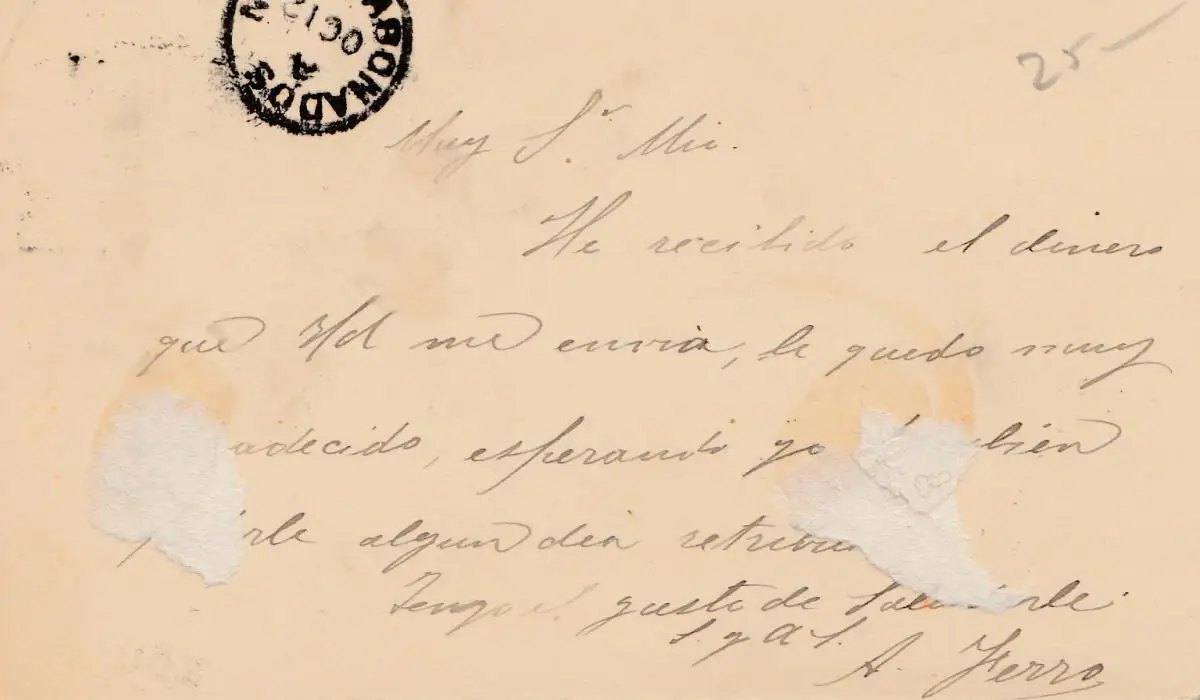 ABONADOS
4
OC12
N
25-
Muy Sr. Mio.
He recibido el dinero
que Ud me envia, le quedo muy
adecido, esperando yo bien
rle algun dia retribu
Tengo el gusto de Salu rle.
S. y A. S.
A. Ferro